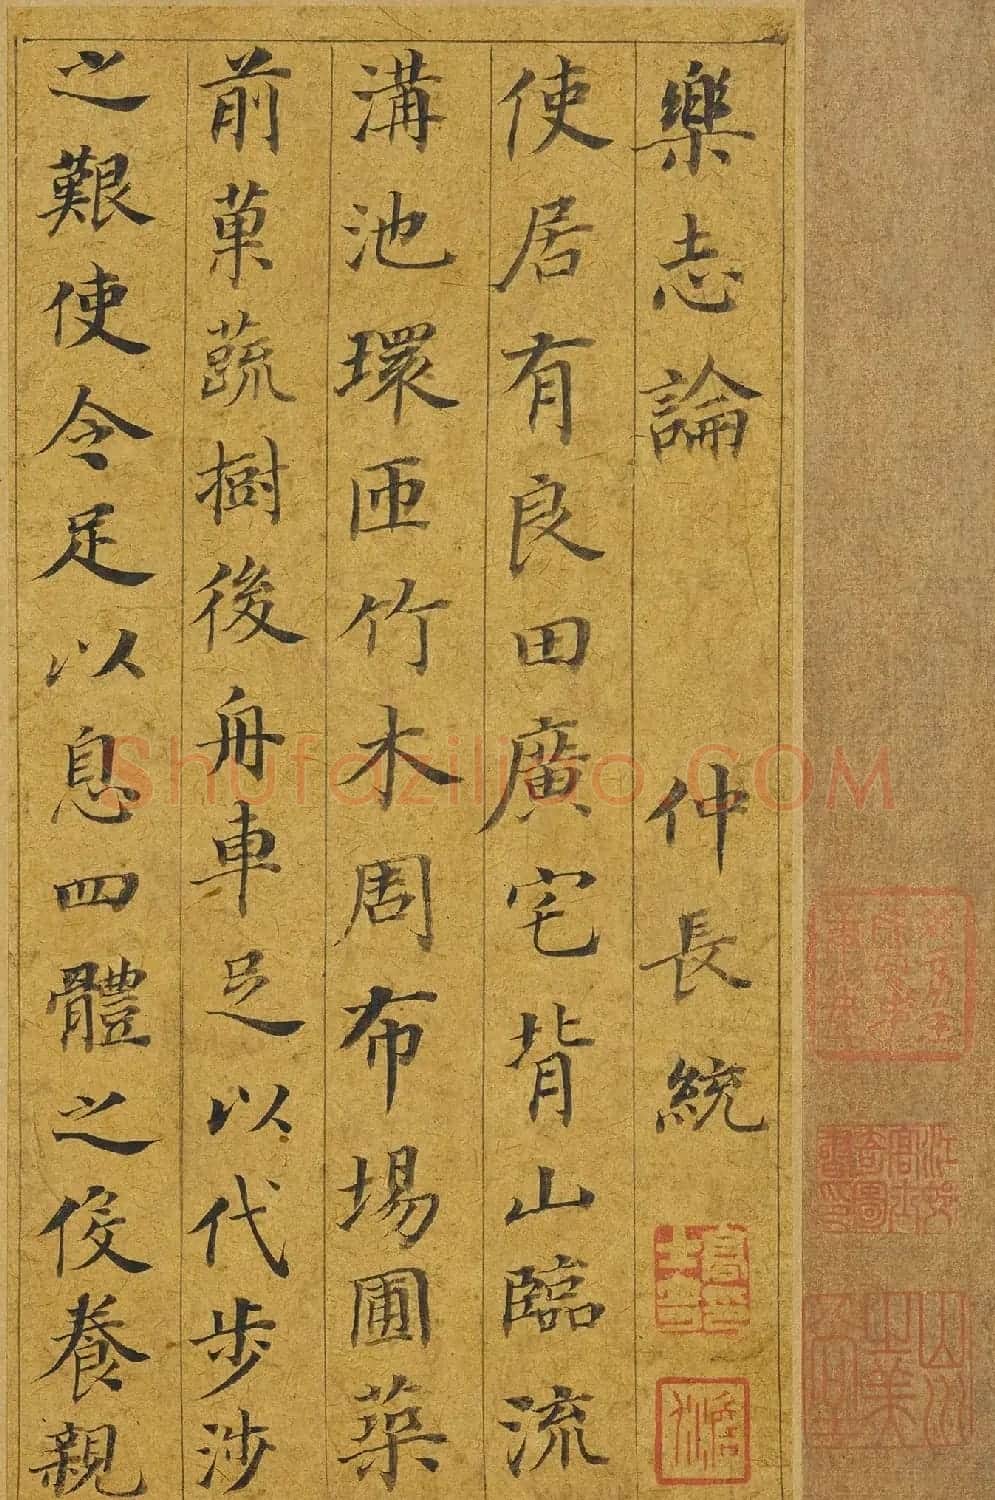 樂志論 仲長統
使居有良田廣宅背山臨流
溝池環匝竹木周布場圃築
前菓蔬樹後舟車足以代步涉
之艱使令足以息四體之役養親
Shufaziliao.COM